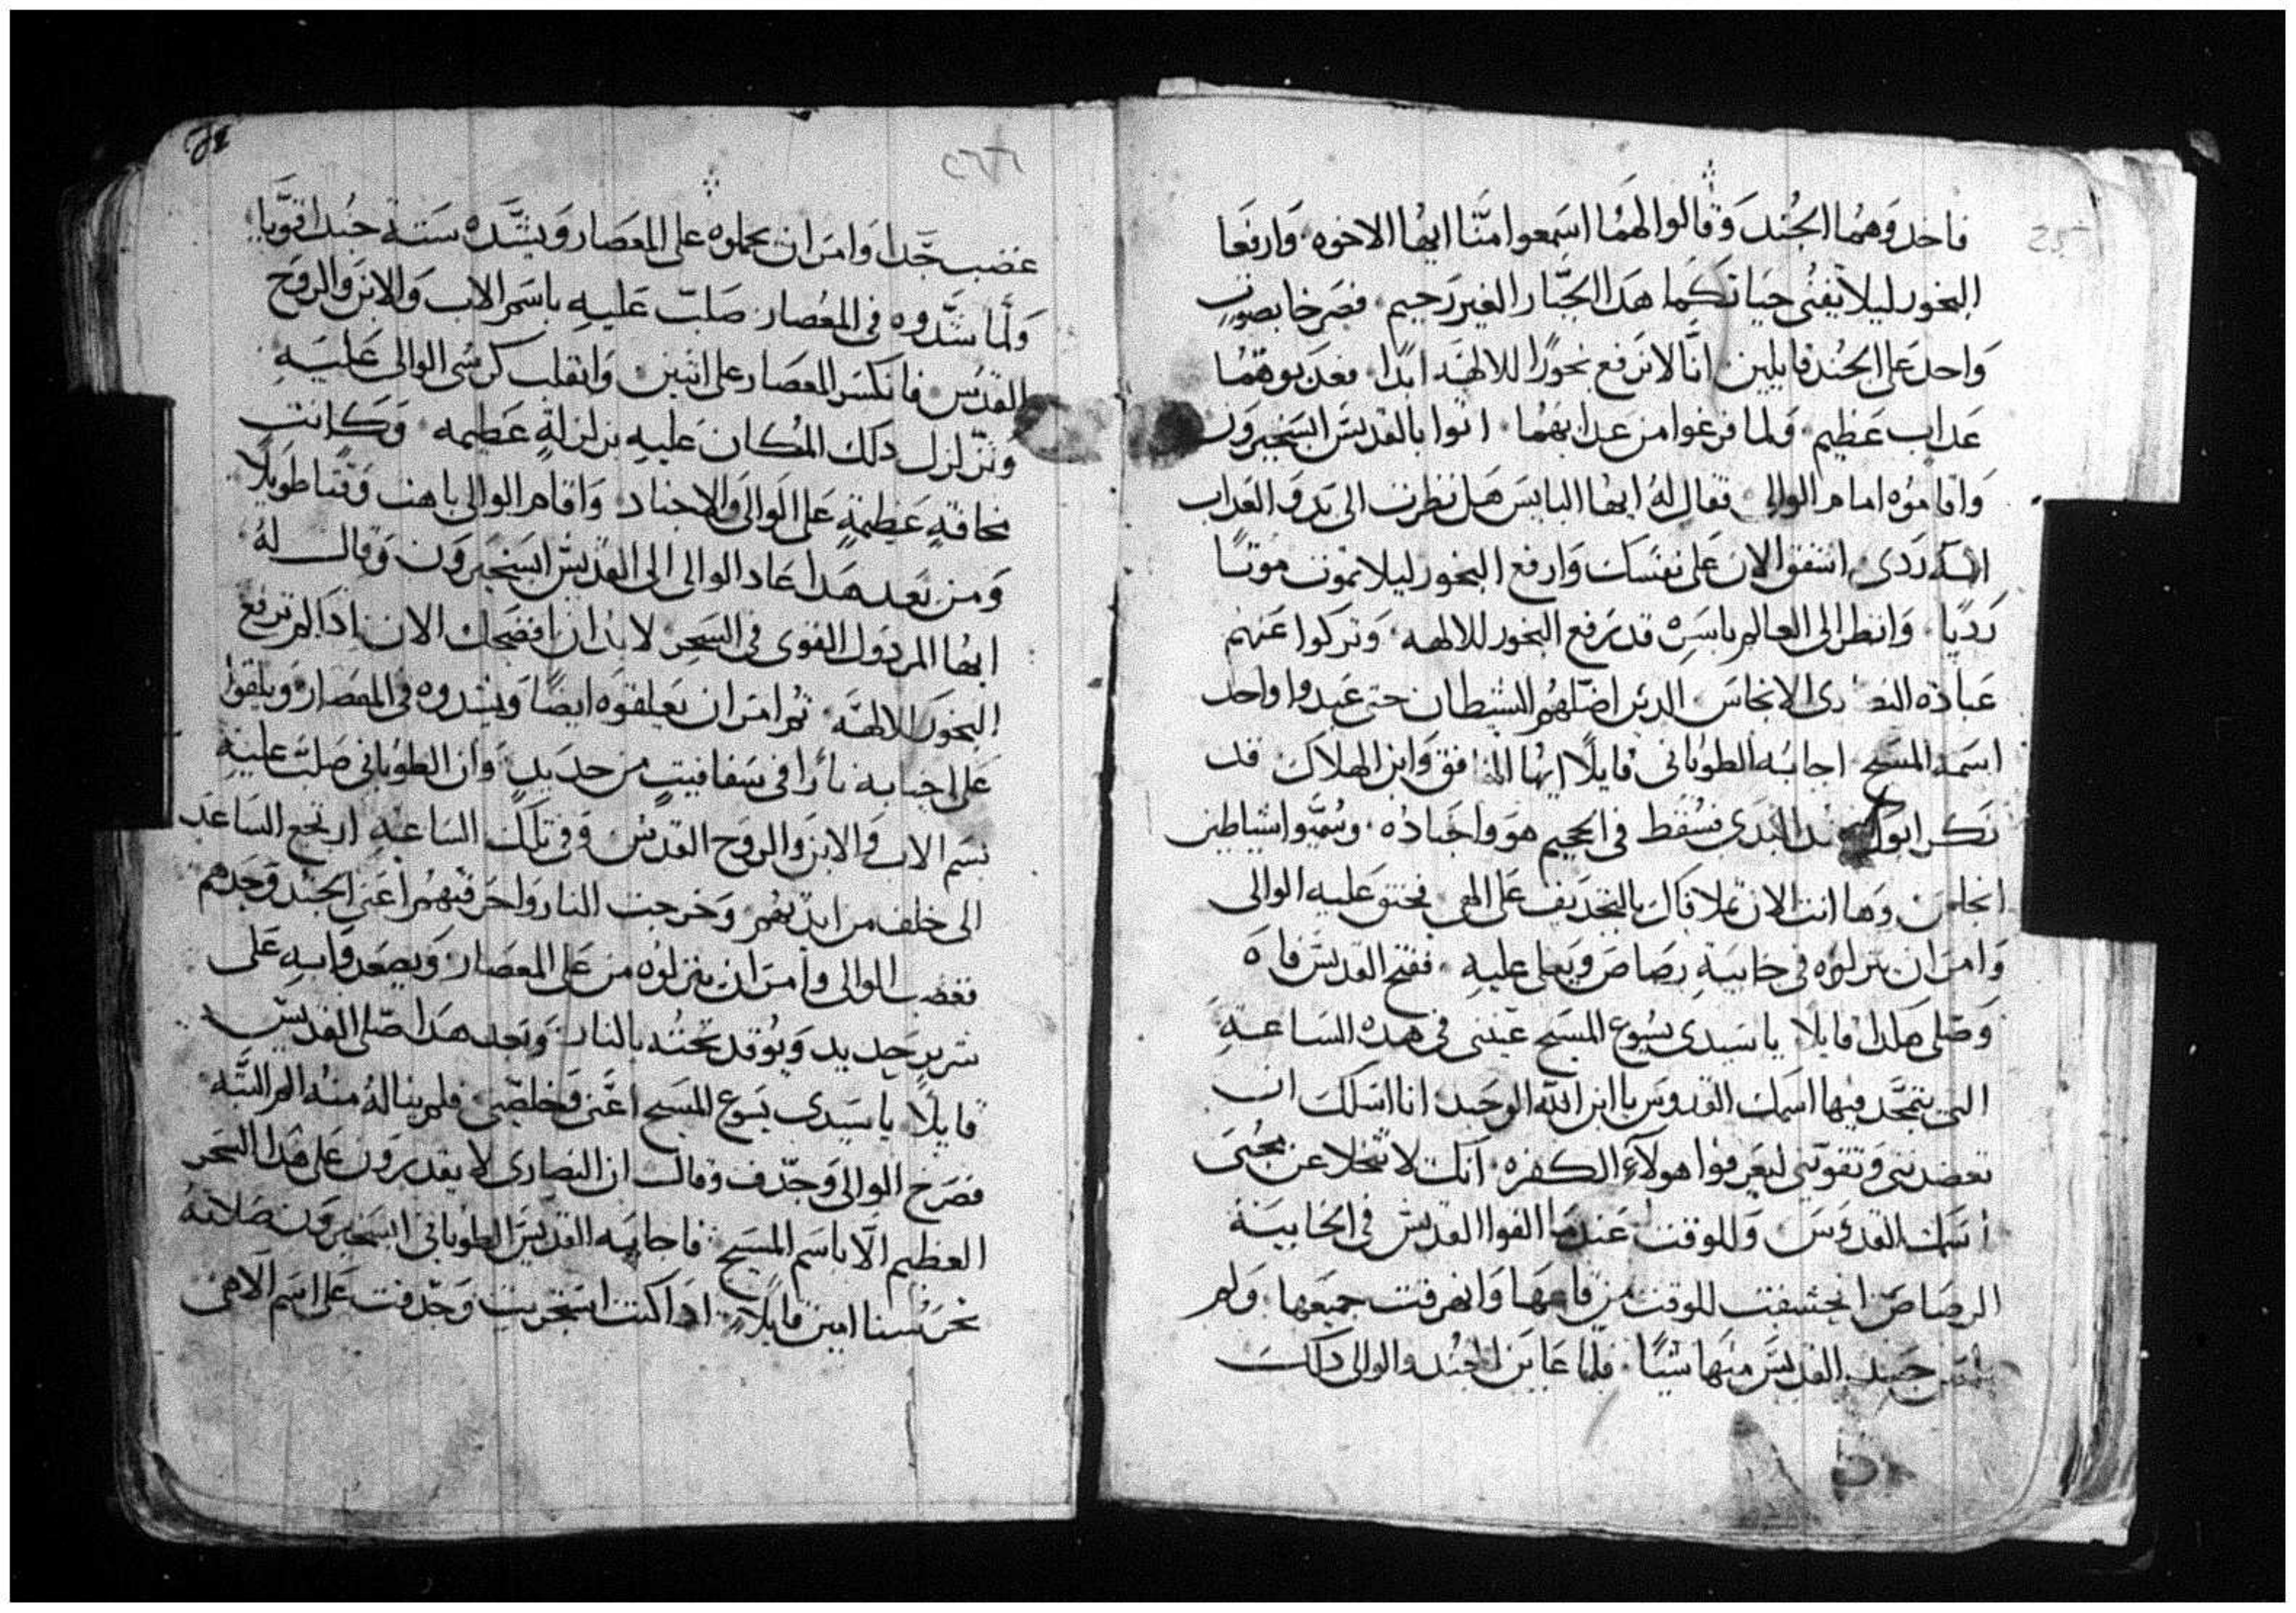 فاخدوهما الجند وقالوا لهما اسمعوا منّا ايها الاخوه وارفعا
البخور ليلا يفنى حياتكما هدا الجبّار الغير رحيم فصرخا بصوتٍ
واحد على الجند قايلين انّا لا نرفع بخورًا للالهه ابدًا فعدبوهما
عداب عظيم ولما فرغوا من عدابهما اتوا بالقديس ابسخيرون
واقاموه امام الوالى فقال له ايها البايس هل نظرت الى بدو العداب
الردى اشفق الان على نفسك وارفع البخور ليلا تموت موتًا
رديًا وانظر الى العالم باسره قد يرفع البخور للالهه وتركوا عنهم
عبادة النصارى الانجاس الدين اضلهم الشيطان حتى عبدوا واحد
اسمه المسيح اجابه الطوبانى قايلًا ايها المنافق وابن الهلاك قد
نكر ابوك البدى فسقط فى الجحيم هو واجناده وسُمّيوا شياطين
وها انت الان تملا فاك بالتجديف على الهى فحنق عليه الوالى
وامر ان ينزلوه فى خابيةِ رصاص ويغلى عليهِ ففتح القديس فاه
وصلى هكدا قايلا يا سيدى يسوع المسيح عيننى فى هده الساعةِ
التى يتمجّد فيها اسمك القدوس يا ابن الله الوحيد انا اسلك ان
تعضدنى وتقوينى ليعرفوا هولآء الكفره انك لا تتخلا عن محبى
اسمك القدوس وللوقت عندما القوا القديس فى الخابية
الرصاص انخسفت للوقت من قاعها وانهرقت جميعها ولم
جسد القديس منها شيًا فلما عاين الجند والوالى دلك
غضب جّدا وامر ان يحملوه على المعصار ويشّده ستة جند اقويا
ولما شّدوه فى المعصار صلب عليهِ باسم الاب والابن والروح
القدس فانكسر المعصار على اتنين وانقلب كرسى الوالى عليهِ
وتزلزل دلك المكان عليهِ بزلزلةٍ عظيمه وكانت
مخافةٍ عظيمةٍ على الوالى والاجناد واقام الوالى باهت وقتًا طويلًا
ومن بعد هدا عاد الوالى الى القديس ابسخيرون وقال له
ايها المردول القوى فى السحر لابد ان افضحك الان ادا لم ترفع
البخور للالهه ثم امر ان يعلقوه ايضًا ويشدوه فى المعصار ويلقوا
على اجنابه نارًا فى سفافيتٍ من حديدٍ وان الطوبانى صلب عليهِ
بسم الاب والابن والروح القدس وفى تلك الساعهِ ارتجع الساعد
الى خلف من ايديهم وخرجت النار واحرقتهم اعنى الجند وجدهم
فغضب الوالى وامر ان ينزلوه من على المعصار ويصعدوا به على
سريرٍ حديد ويُوقد تحته بالنار وبعد هدا صلى القديس
قايلًا يا سيدى يسوع المسيح اعنى وخلصنى فلم يناله منه الم البته
فصرخ الوالى وجّدف وقال ان النصارى لا يقدرون على هدا السحر
العظيم الّا باسم المسيح فاجابه القديس الطوبانى ابسخيرون صلاته
تحرسنا امين قايلًا ادا كنت استجريت وجّدفت على اسم الاهى